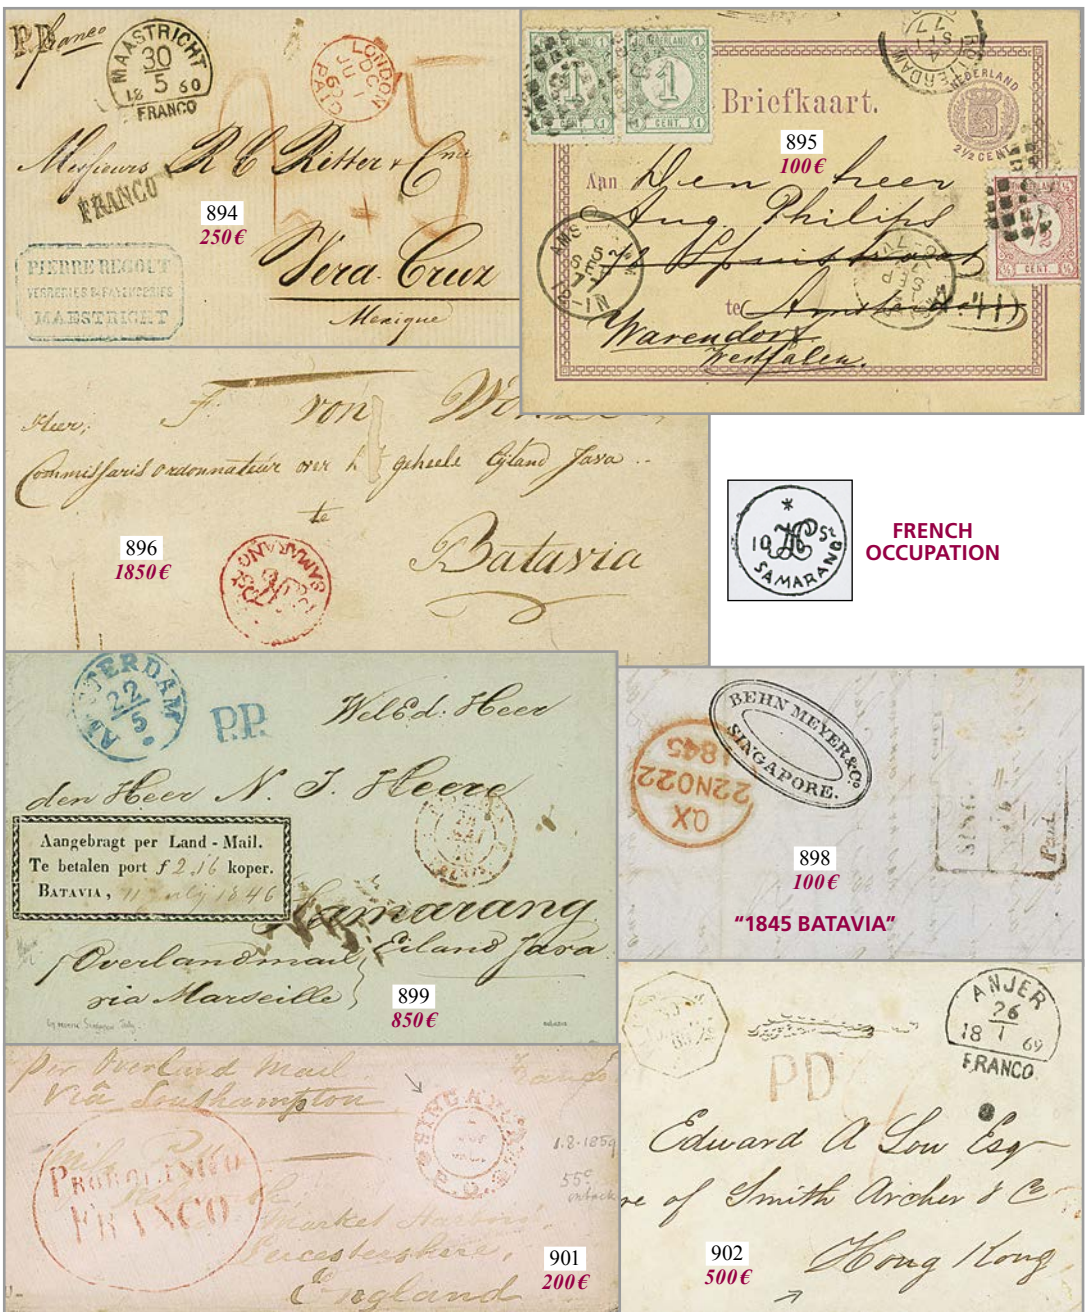 P.P.
franco
MAASTRICHT
30
5
18 60
FRANCO
LONDON
PAID
Messieurs R C Ritter & Cnie
FRANCO
894
250 €
Vera-Cruz
Mexique
PIERRE REGOUT
VERRERIES & FAYENCERIES
MAESTRICHT
NEDERLAND
1
CENT.
1
CENT.
ROTTERDAM
Briefkaart.
NEDERLAND
2½ CENT
895
100 €
Aan Den heer
Aug. Philips
te Amsterdam
Warendorf
Westfalen.
½ CENT. ½
Heer, F. von
Commissaris ordonnateur over het geheele Eyland Java
te
Batavia
896
1850 €
SAMARANG
*
SAMARANG
FRENCH
OCCUPATION
AMSTERDAM
22
5
P.P.
WelEd: Heer
den Heer N. J. Heere
Aangebragt per Land-Mail.
Te betalen port f 2,16 koper.
BATAVIA, 11 july 1846
Samarang
Eiland Java
Overlandmail
via Marseille
899
850 €
BEHN MEYER & Co.
SINGAPORE.
QX
22NO22
1845
Paid
898
100 €
“1845 BATAVIA”
Per Overland Mail
Viâ Southampton
PROBOLINGO
FRANCO
1.8-1859
55c
Market Harbro'
Leicestershire,
England
901
200 €
ANJER
26
18 1 69
FRANCO
PD
Edward A Low Esq
re of Smith Archer & Co
902
500 €
Hong Kong